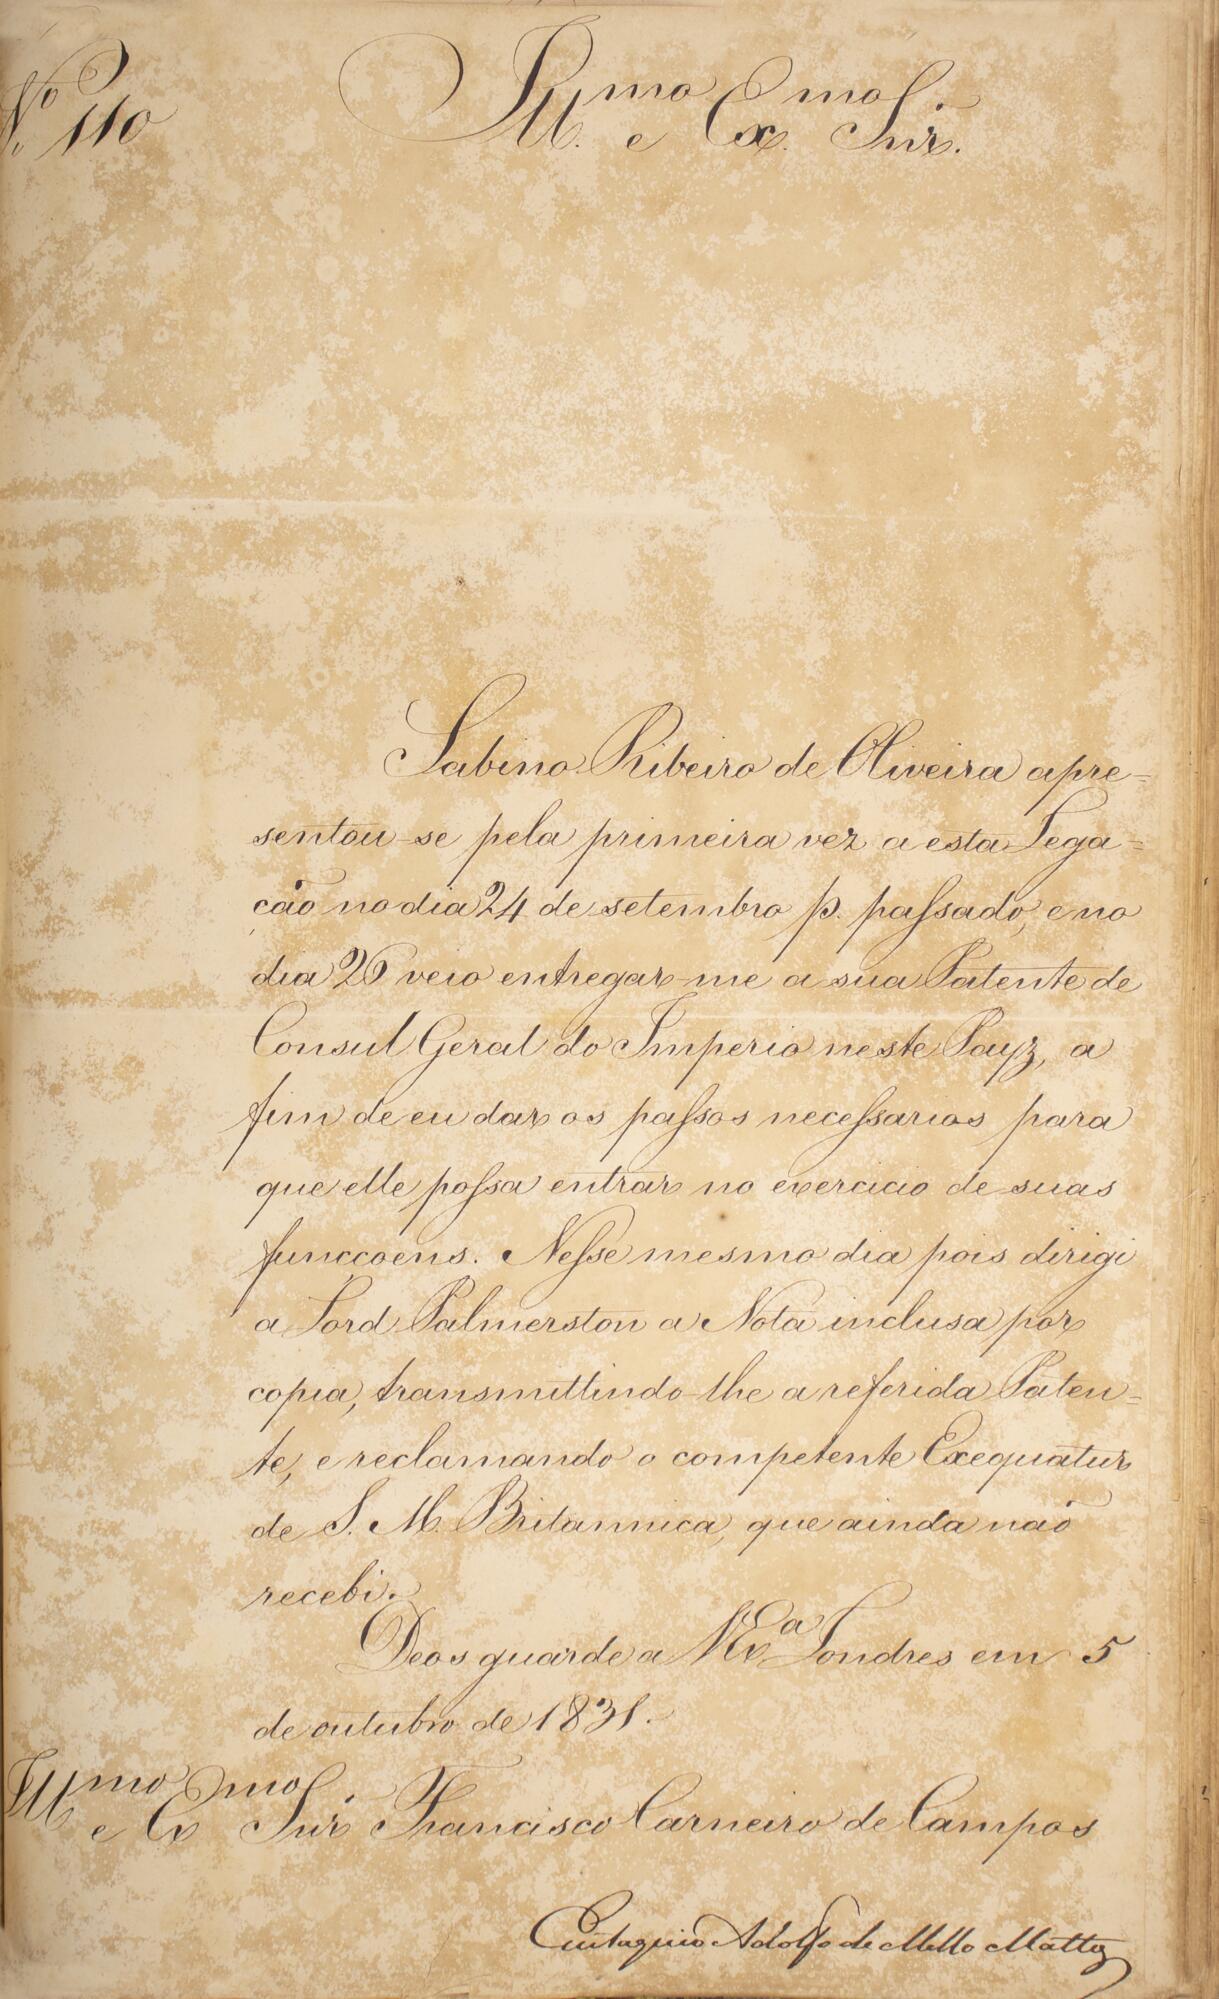 Nº 110
Ill.mo e Ex.mo Snr.
Sabino Ribeiro de Oliveira apre=
sentou-se pela primeira vez a esta Lega=
ção no dia 24 de setembro p. passado, e no
dia 26 veio entregar-me a sua Patente de
Consul Geral do Imperio neste Payz, a
fim de eu dar os passos necessarios para
que elle possa entrar no exercicio de suas
funccoens. Nesse mesmo dia pois dirigi
a Lord Palmerston a Nota inclusa por
copia, transmittindo-lhe a referida Paten=
te, e reclamando o competente Exequatur
de S. M. Britannica, que ainda não
recebi.
Deos guarde a VExa Londres em 5
de outubro de 1831.
Illmo e Exmo Snr Francisco Carneiro de Campos
Eustaquio Adolfo de Mello Mattos